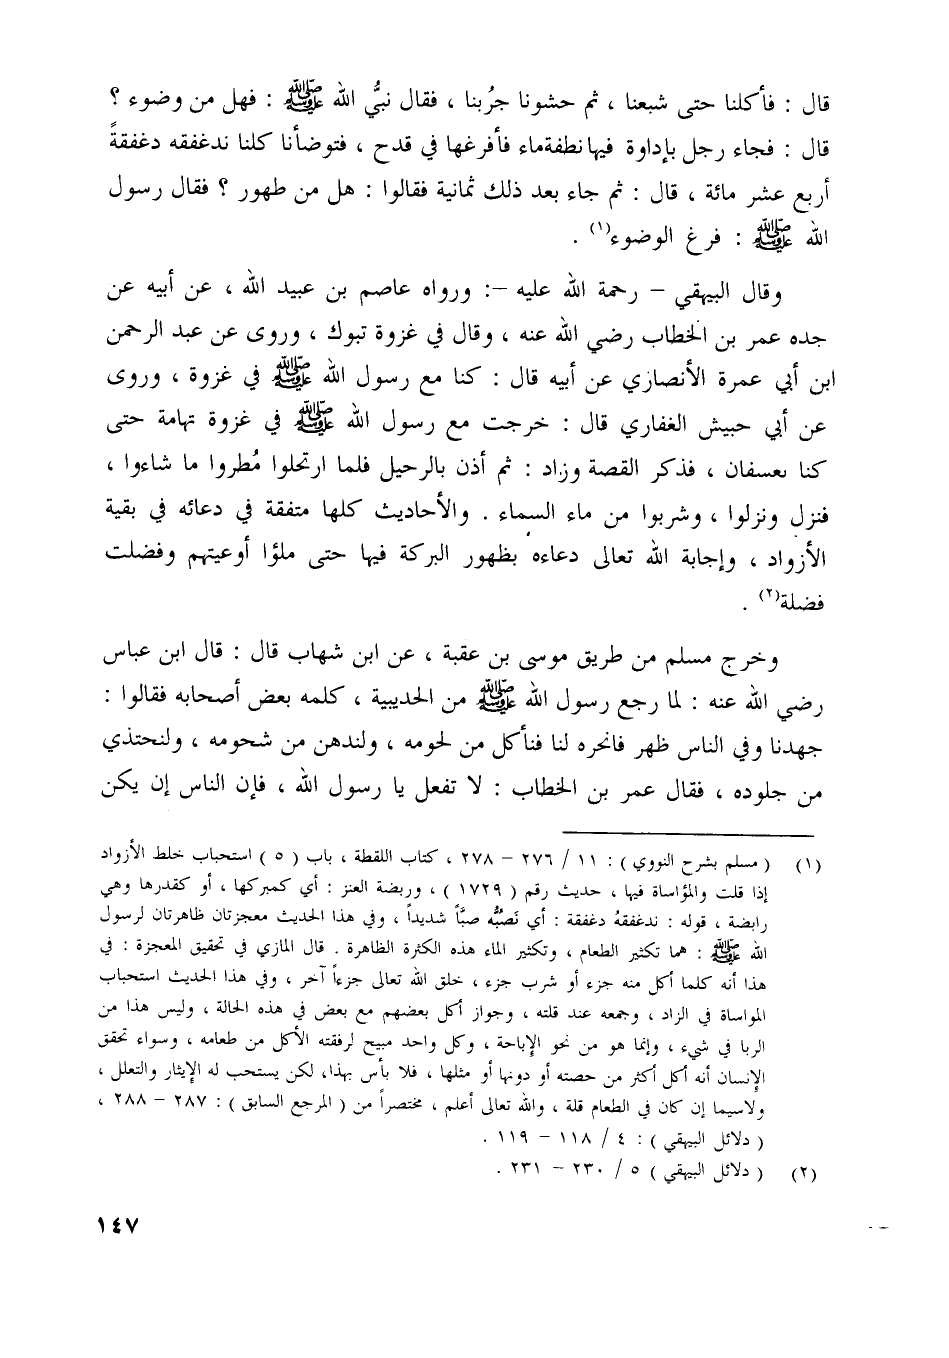 قال : فأكلنا حتى شبعنا ، ثم حشونا جرُبنا ، فقال نبيُّ الله ﷺ : فهل من وضوء ؟
قال : فجاء رجل بإداوة فيها نطفة ماء فأفرغها في قدح ، فتوضأنا كلنا ندغفقه دغفقةً
أربع عشر مائة ، قال : ثم جاء بعد ذلك ثمانية فقالوا : هل من طهور ؟ فقال رسول
الله ﷺ : فرغ الوضوء(١) .
وقال البيهقي – رحمة الله عليه –: ورواه عاصم بن عبيد الله ، عن أبيه عن
جده عمر بن الخطاب رضي الله عنه ، وقال في غزوة تبوك ، وروى عن عبد الرحمن
ابن أبي عمرة الأنصاري عن أبيه قال : كنا مع رسول الله ﷺ في غزوة ، وروى
عن أبي حبيش الغفاري قال : خرجت مع رسول الله ﷺ في غزوة تهامة حتى
كنا بعسفان ، فذكر القصة وزاد : ثم أذن بالرحيل فلما ارتحلوا مُطروا ما شاءوا ،
فنزل ونزلوا ، وشربوا من ماء السماء . والأحاديث كلها متفقة في دعائه في بقية
الأزواد ، وإجابة الله تعالى دعاءه بظهور البركة فيها حتى ملؤا أوعيتهم وفضلت
فضلة(٢) .
وخرج مسلم من طريق موسى بن عقبة ، عن ابن شهاب قال : قال ابن عباس
رضي الله عنه : لما رجع رسول الله ﷺ من الحديبية ، كلمه بعض أصحابه فقالوا :
جهدنا وفي الناس ظهر فانحره لنا فنأكل من لحومه ، ولندهن من شحومه ، ولنحتذي
من جلوده ، فقال عمر بن الخطاب : لا تفعل يا رسول الله ، فإن الناس إن يكن
(١) ( مسلم بشرح النووي ) : ١١ / ٢٧٦ – ٢٧٨ ، كتاب اللقطة ، باب ( ٥ ) استحباب خلط الأزواد
إذا قلت والمؤاساة فيها ، حديث رقم ( ١٧٢٩ ) ، وربضة العنز : أي كمبركها ، أو كقدرها وهي
رابضة ، قوله : ندغفقهُ دغفقة : أي نَصُبُّه صبًّا شديداً ، وفي هذا الحديث معجزتان ظاهرتان لرسول
الله ﷺ : هما تكثير الطعام ، وتكثير الماء هذه الكثرة الظاهرة . قال المازي في تحقيق المعجزة : في
هذا أنه كلما أكل منه جزء أو شرب جزء ، خلق الله تعالى جزءاً آخر ، وفي هذا الحديث استحباب
المواساة في الزاد ، وجمعه عند قلته ، وجواز أكل بعضهم مع بعض في هذه الحالة ، وليس هذا من
الربا في شيء ، وإنما هو من نحو الإباحة ، وكل واحد مبيح لرفقته الأكل من طعامه ، وسواء تحقق
الإنسان أنه أكل أكثر من حصته أو دونها أو مثلها ، فلا بأس بهذا، لكن يستحب له الإيثار والتعلل ،
ولاسيما إن كان في الطعام قلة ، والله تعالى أعلم ، مختصراً من ( المرجع السابق ) : ٢٨٧ – ٢٨٨ ،
( دلائل البيهقي ) : ٤ / ١١٨ – ١١٩ .
(٢) ( دلائل البيهقي ) ٥ / ٢٣٠ – ٢٣١ .
١٤٧